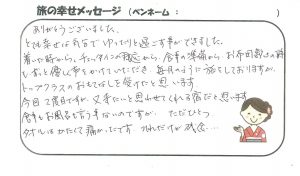 旅の幸せメッセージ (ペンネーム : )
ありがとうございました。
とても幸せな気分でゆったりと過ごす事ができました。
着いた時から、チェックインの場から、食事の準備から、お布団敷きの時
も、すごく優しく声をかけていただき、毎月のように旅をしておりますが、
トップクラスのおもてなしを受けたと思います。
今回2度目ですが、又来たいと思わせてくれる宿だと思います
食事もお風呂も言う事ないのですが、ただひとつ
タオルはかたくて痛かったです。それだけが残念…